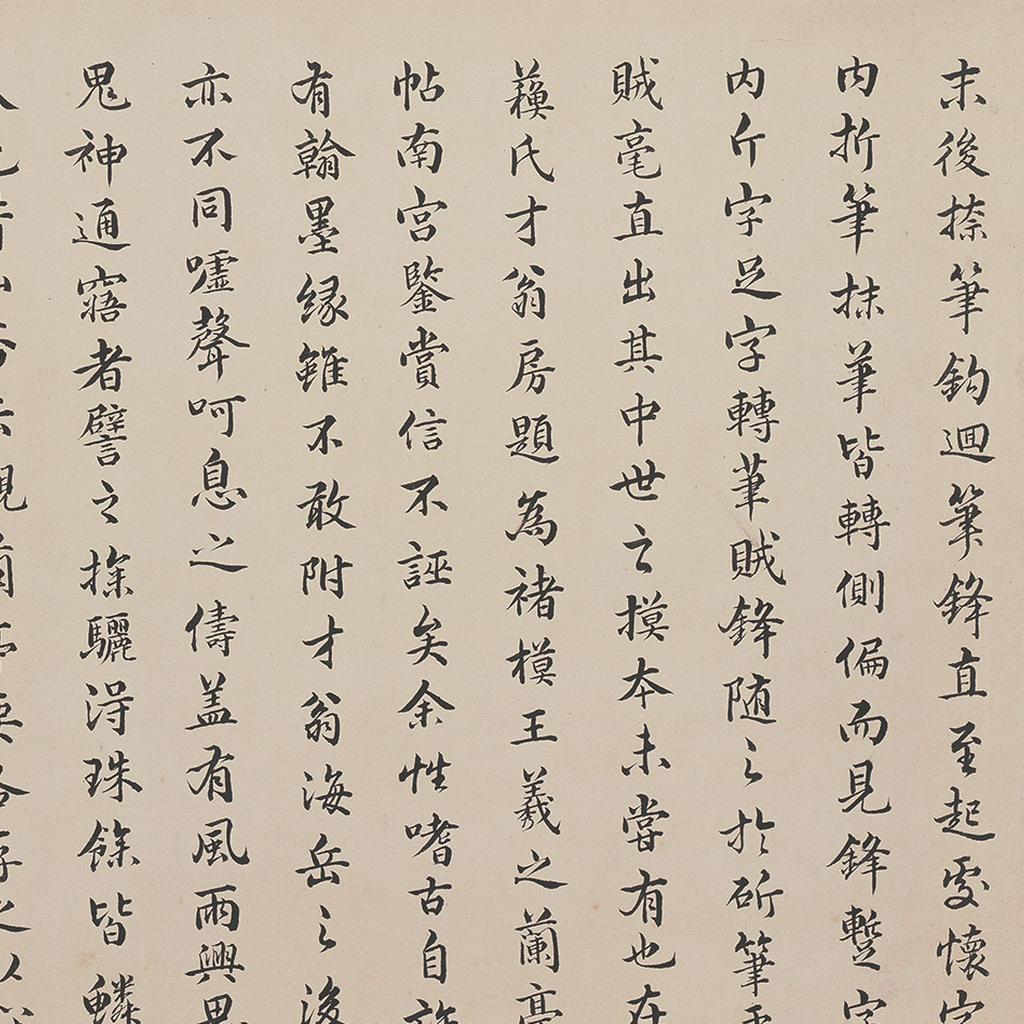 末後捺筆鈎迴筆鋒直至起處懷字
内折筆抹筆皆轉側偏而見鋒蹔字
内斤字足字轉筆賊鋒随之於斫筆
賊毫直出其中世之摸本未嘗有也在
蘓氏才翁房題為褚模王羲之蘭亭
帖南宫鑒賞信不誣矣余性嗜古自許
有翰墨縁雖不敢附才翁海岳之後
亦不同嘘聲呵息之儔盖有風雨興思
鬼神通寤者譬之探驪淂珠餘皆鱗